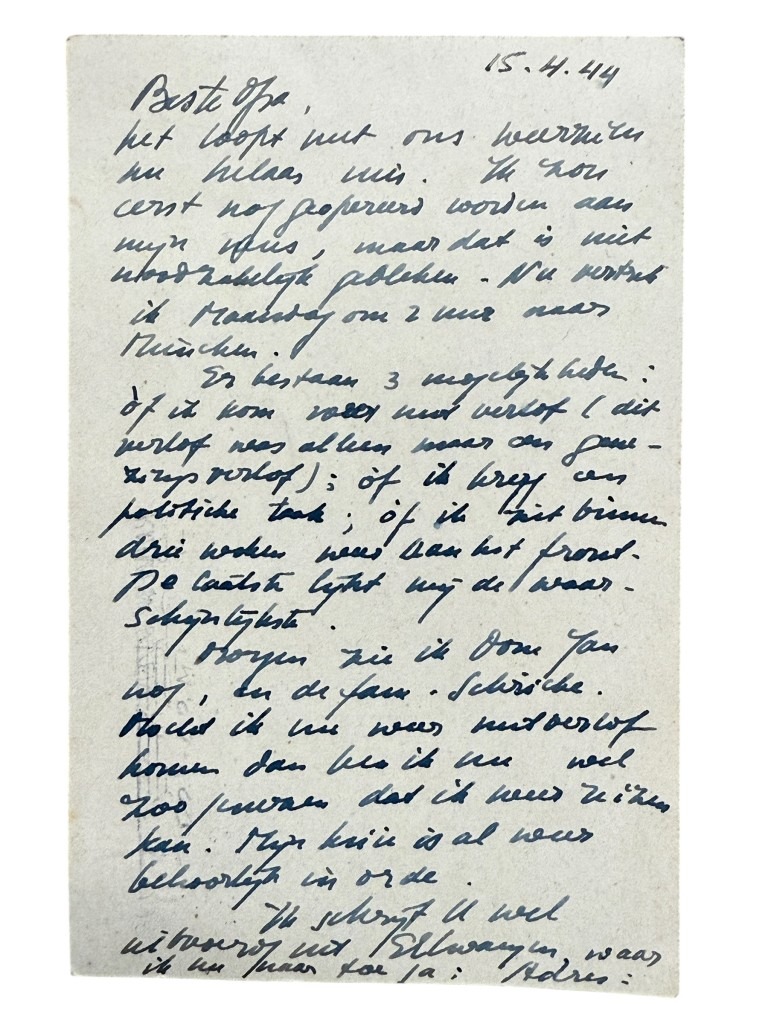 15.4.44
Beste Opa,
het loopt met ons weerzien
nu helaas mis. Ik zou
eerst nog geopereerd worden aan
mijn neus, maar dat is niet
noodzakelijk gebleken. Nu vertrek
ik Maandag om 2 uur naar
München.
Er bestaan 3 mogelijkheden:
òf ik kom weer met verlof (dit
verlof was alleen maar een gene-
zingsverlof); òf ik kreeg een
politieke taak; òf ik zit binnen
drie weken weer aan het front.
De laatste lijkt mij de waar-
schijnlijkste.
Morgen zie ik Oom Jan
nog, en de fam.
Mocht ik nu weer met verlof
komen dan ben ik nu wel
zoo dat ik weer
kan. Mijn knie is al weer
behoorlijk in orde.
Ik schrijf U wel
uitvoerig uit Ellwangen waar
ik nu naar toe ga: Adres: